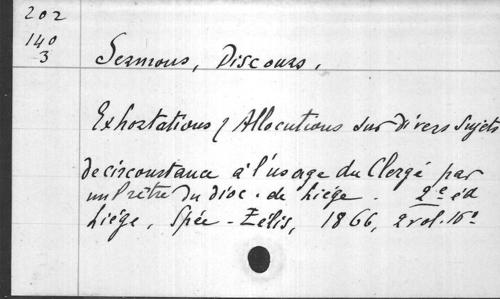 202
140
3
Sermons, Discours,
Exhortations & Allocutions sur divers sujets
de circonstance à l'usage du Clergé par
un Prêtre du dioc. de Liége. 2e éd
Liége, Spée-Zélis, 1866, 2 vol. 16°